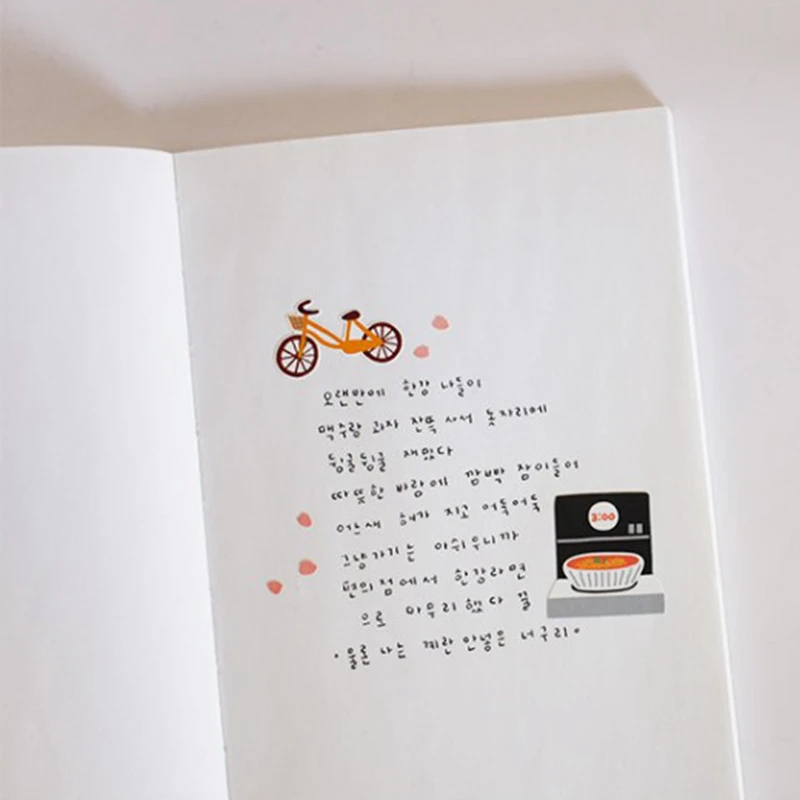 오랜만에 한강 나들이
맥주랑 과자 잔뜩 사서 돗자리에
뒹굴뒹굴 재밌다
따뜻한 바람에 깜빡 잠이들어
어느새 해가 지고 어둑어둑
그냥가기는 아쉬우니까
편의점에서 한강라면
으로 마무리했다 끝
•물론 나는 계란 안넣은 너구리•
3:00